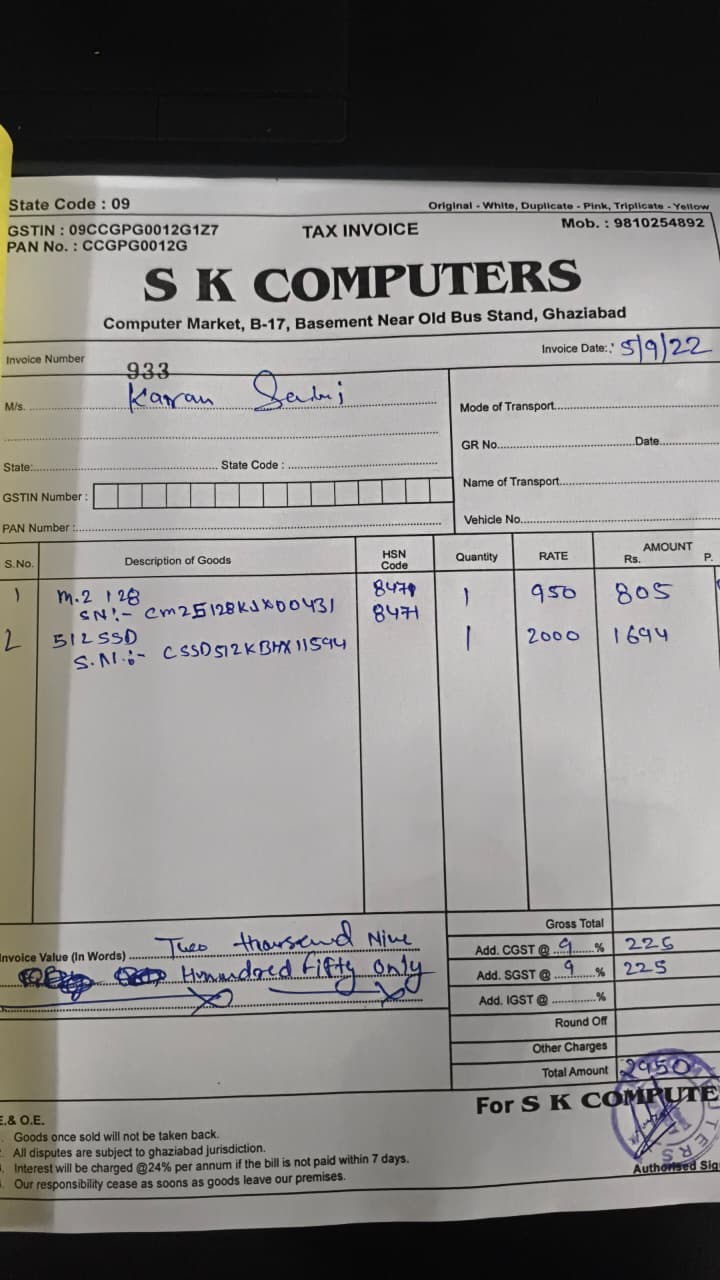 State Code : 09
Original - White, Duplicate - Pink, Triplicate - Yellow
GSTIN : 09CCGPG0012G1Z7
TAX INVOICE
Mob. : 9810254892
PAN No. : CCGPG0012G
S K COMPUTERS
Computer Market, B-17, Basement Near Old Bus Stand, Ghaziabad
Invoice Number 933
Invoice Date: 5/9/22
M/s. Karan
Mode of Transport
GR No. Date
State: State Code :
Name of Transport
GSTIN Number :
Vehicle No.
PAN Number :
S.No. Description of Goods HSN Code Quantity RATE AMOUNT Rs. P.
1 M.2 128 8471 1 950 805
SN:- CM25128KJXD0431 8471
2 512SSD 1 2000 1694
S.N.:- CSSD512KBHX11594
Gross Total
Invoice Value (In Words) Two thousend Nine
Hunndred Fifty Only
Add. CGST @ 9 % 225
Add. SGST @ 9 % 225
Add. IGST @ %
Round Off
Other Charges
Total Amount 2950
For S K COMPUTE
E.& O.E.
Goods once sold will not be taken back.
All disputes are subject to ghaziabad jurisdiction.
Interest will be charged @24% per annum if the bill is not paid within 7 days.
Our responsibility cease as soons as goods leave our premises.
Authorised Sig